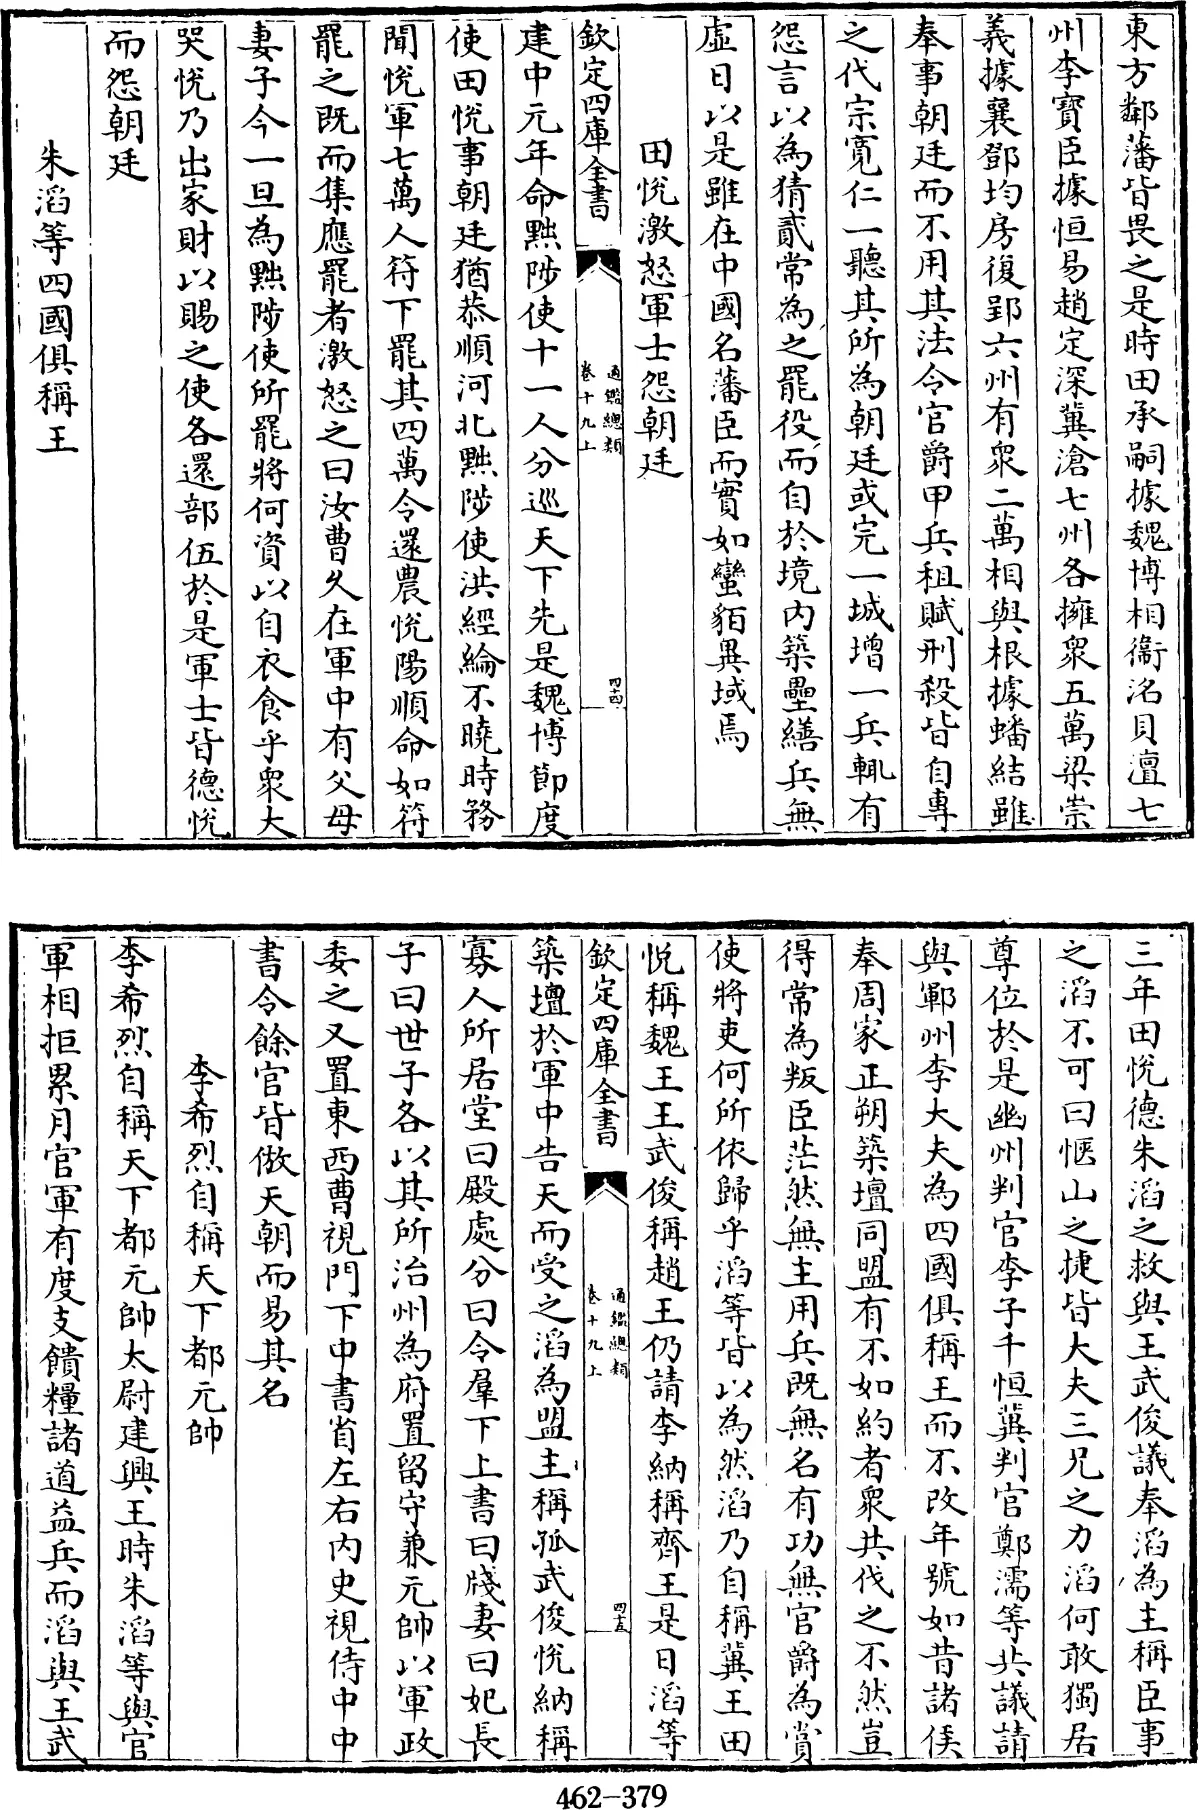 東方鄰藩皆畏之是時田承嗣據魏博相衞洺貝澶七
州李寶臣據恒易趙定深冀滄七州各擁衆五萬梁崇
義據襄鄧均房復郢六州有衆二萬相與根據蟠結雖
奉事朝廷而不用其法令官爵甲兵租賦刑殺皆自專
之代宗寛仁一聽其所為朝廷或完一城增一兵輒有
怨言以為猜貳常為之罷役而自於境内築壘繕兵無
虚日以是雖在中國名藩臣而實如蠻貊異域焉
田悦激怒軍士怨朝廷
欽定四庫全書
通鑑總類
卷十九上
四十四
建中元年命黜陟使十一人分巡天下先是魏博節度
使田悦事朝廷猶恭順河北黜陟使洪經綸不曉時務
聞悦軍七萬人符下罷其四萬令還農悦陽順命如符
罷之既而集應罷者激怒之曰汝曹久在軍中有父母
妻子今一旦為黜陟使所罷將何資以自衣食乎衆大
哭悦乃出家財以賜之使各還部伍於是軍士皆德悦
而怨朝廷
朱滔等四國俱稱王
三年田悦德朱滔之救與王武俊議奉滔為主稱臣事
之滔不可曰愜山之捷皆大夫三兄之力滔何敢獨居
尊位於是幽州判官李子千恒冀判官鄭濡等共議請
與鄆州李大夫為四國俱稱王而不改年號如昔諸侯
奉周家正朔築壇同盟有不如約者衆共伐之不然豈
得常為叛臣茫然無主用兵既無名有功無官爵為賞
使將吏何所依歸乎滔等皆以為然滔乃自稱冀王田
悦稱魏王王武俊稱趙王仍請李納稱齊王是日滔等
欽定四庫全書
通鑑總類
卷十九上
四十五
築壇於軍中告天而受之滔為盟主稱孤武俊悦納稱
寡人所居堂曰殿處分曰令羣下上書曰牋妻曰妃長
子曰世子各以其所治州為府置留守兼元帥以軍政
委之又置東西曹視門下中書省左右内史視侍中中
書令餘官皆倣天朝而易其名
李希烈自稱天下都元帥
李希烈自稱天下都元帥太尉建興王時朱滔等與官
軍相拒累月官軍有度支饋糧諸道益兵而滔與王武
462-379